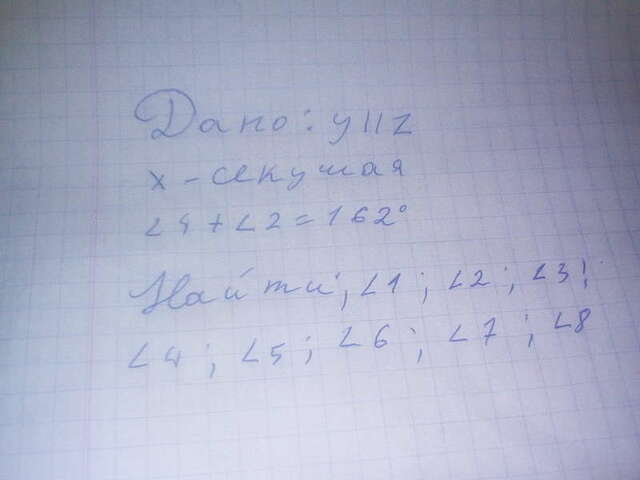 Дано: y||z
x - секущая
∠4 + ∠2 = 162°
Найти; ∠1; ∠2; ∠3;
∠4; ∠5; ∠6; ∠7; ∠8